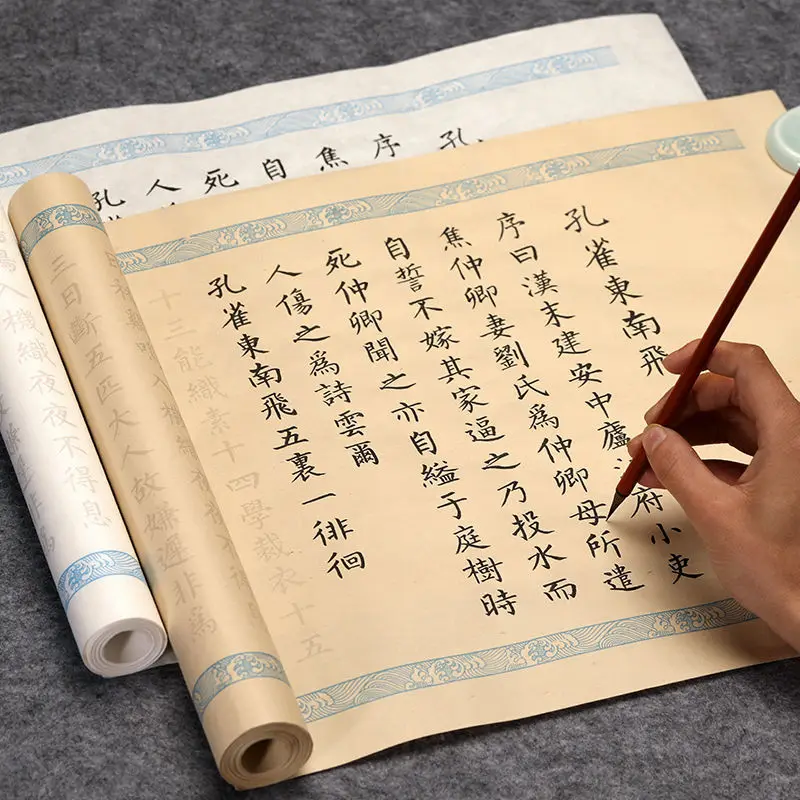 孔雀東南飛
序曰漢末建安中廬府小吏
焦仲卿妻劉氏爲仲卿母所遣
自誓不嫁其家逼之乃投水而
死仲卿聞之亦自縊于庭樹時
人傷之爲詩雲爾
孔雀東南飛五裏一徘徊
十三能織素十四學裁衣十五
三日斷五匹大人故嫌遲非爲
孔
序
焦
自
死
人
孔
入機織夜夜不得息